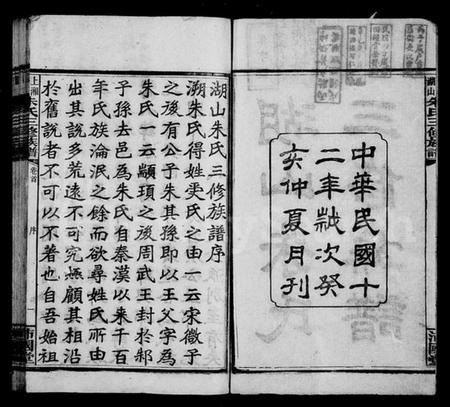 中華民國十
二年歲次癸
亥仲夏月刊
湖山朱氏三修族譜
湖山朱氏三修族譜序
溯朱氏得姓受氏之由一云宋微子
之後有公子朱其孫即以王父字為
朱氏一云顓頊之後周武王封於邾
子孫去邑為朱氏自秦漢以來千百
年氏族淪泯之餘而欲尋姓氏所由
出其說多荒遠不可究熹顧其相沿
於舊說者不可以不著也自吾始祖
上湘朱氏三修族譜
卷首
序
一